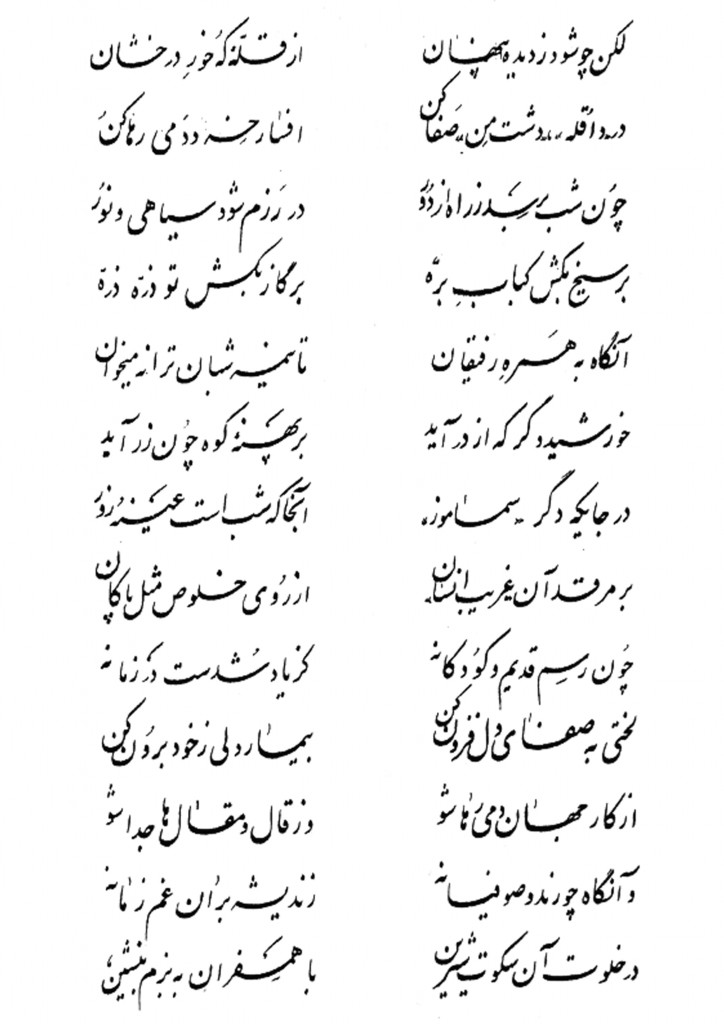 لکن چو شود ز دیده پنهان از قلّهٔ که خورِ درخشان
در داقُله، دشت مِن، صَفا کن افسار خِرَد دَمی رها کن
چون شب برسد ز راه از دور در رَزم شود سیاهی و نور
بر سیخ بکش کبابِ برّه برگاز بکش تو ذرّه ذرّه
آنگاه به همرهِ رفیقان تا نیمه شبان ترانه میخوان
خورشید دگر که از در آید بر پهنهٔ کوه چون زر آید
در جایکه دگر «سماموز» آنجا که شب است عینهُ روز
بر مرقد آن غریب انسان از روی خلوص مثل پاکان
چون رسم قدیم و کودکانه کز یاد شدست در زمانه
لختی به صفای دل فزون کن بیمار دلی ز خود برون کن
از کار جهان دمی رها شو وز قال و مقال ها جدا شو
وآنگاه چو رند و صوفیانه زندیشه بران غم زمانه
در خلوت آن سکوت شیرین با همسفران به بزم بنشین،